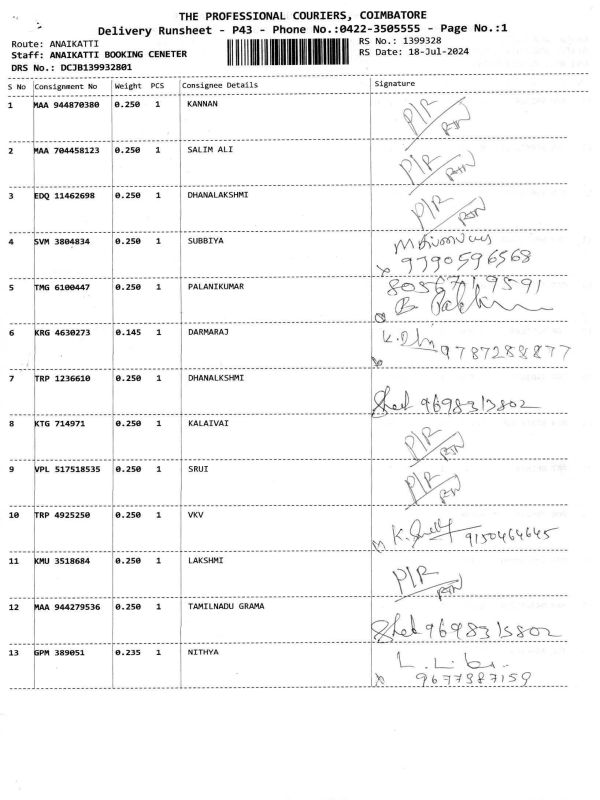 THE PROFESSIONAL COURIERS, COIMBATORE
Delivery Runsheet - P43 - Phone No.:0422-3505555 - Page No.:1
Route: ANAIKATTI RS No.: 1399328
Staff: ANAIKATTI BOOKING CENETER RS Date: 18-Jul-2024
DRS No.: DCJB139932801
S No Consignment No Weight PCS Consignee Details Signature
1 MAA 944870380 0.250 1 KANNAN P/R RTN
2 MAA 704458123 0.250 1 SALIM ALI P/R RTN
3 EDQ 11462698 0.250 1 DHANALAKSHMI P/R RTN
4 SVM 3804834 0.250 1 SUBBIYA
9790596568
5 TMG 6100447 0.250 1 PALANIKUMAR 8056719591
B.
6 KRG 4630273 0.145 1 DARMARAJ K.
9787288877
7 TRP 1236610 0.250 1 DHANALKSHMI
9698313802
8 KTG 714971 0.250 1 KALAIVAI P/R RTN
9 VPL 517518535 0.250 1 SRUI P/R RTN
10 TRP 4925250 0.250 1 VKV K. 9150464645
11 KMU 3518684 0.250 1 LAKSHMI P/R RTN
12 MAA 944279536 0.250 1 TAMILNADU GRAMA
9698313802
13 GPM 389051 0.235 1 NITHYA
9677387159